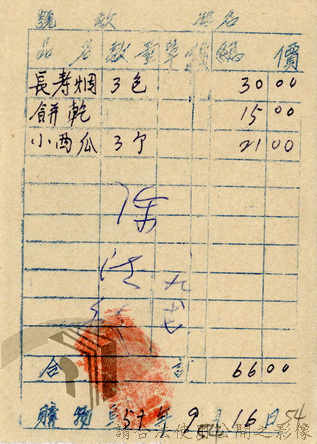 號數 姓名
品名 數量 單價 總價
長寿烟 3包 30 00
餅乾 15 00
小西瓜 3个 21 00
合計 66 00
購物 57年9月16日
請合法使用公開之影像